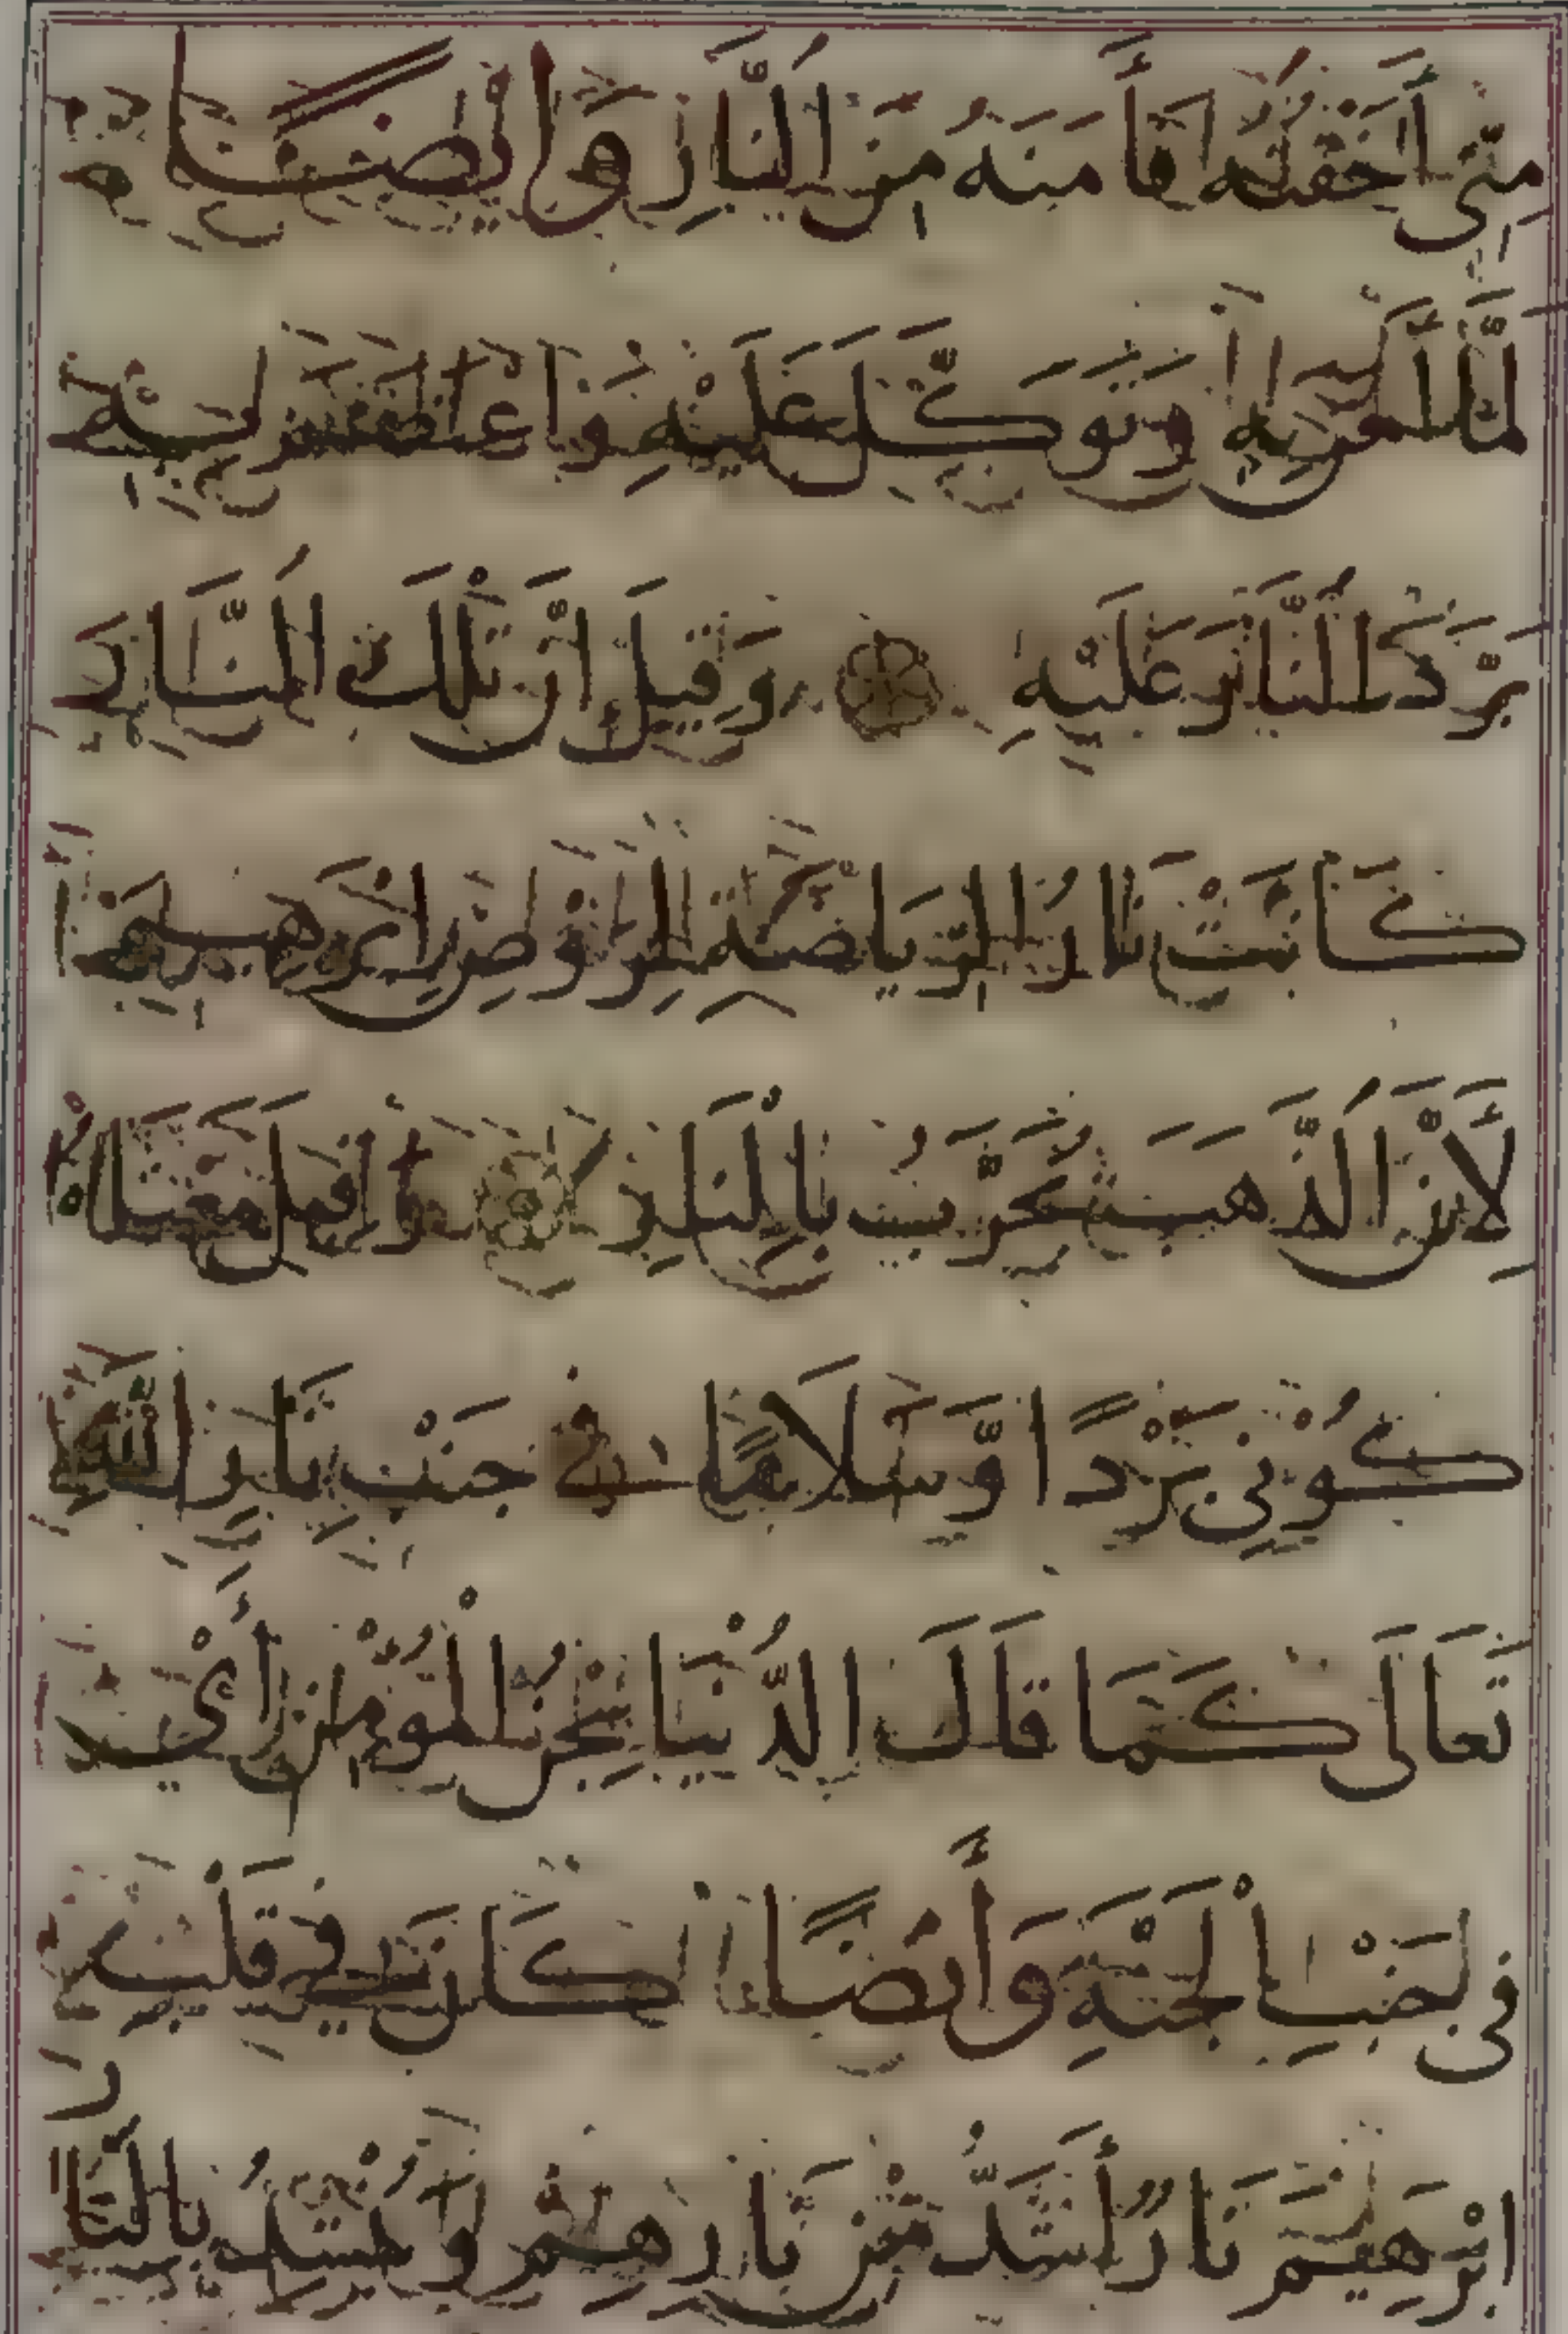 مِنِّي أَخَفْتُهُ فَأَمَنَهُ مِنَ النَّارِ وَأَيْضًا
لَمَّا بِهِ وَتَوَكَّلَ عَلَيْهِ وَا
بَرَّدَ النَّارَ عَلَيْهِ وَقِيلَ انَّ تِلْكَ النَّارَ
كَانَتْ نَارُ الرِّيَاضَةِ اِبْرَهِيمَ
لِأَنَّ الذَّهَبَ يُجَرَّبُ بِالنَّارِ
كُوْنِيْ بَرْدًا وَّسَلَامًا فِي جَنْبِ نَارِ اللهِ
تَعَالَى كَمَا قَالَ الدُّنْيَا سِجْنُ الْمُؤْمِنِ أَيْ
فِى بِجَنْبِ الْجَنَّةِ وَأَيْضًا كَانَ فِي قَلْبِ
اِبْرَهِيمَ نَارٌ أَشَدُّ مِنْ نَارِهِمْ بِالنَّارِ